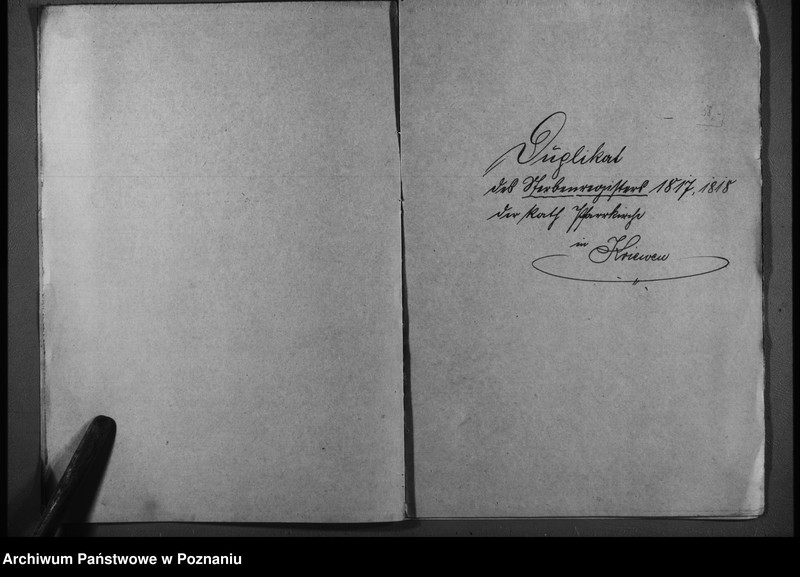 Duplikat
des Sterbenregisters 1817, 1818
der kath Pfarrkirche
in Kriewen
Archiwum Państwowe w Poznaniu